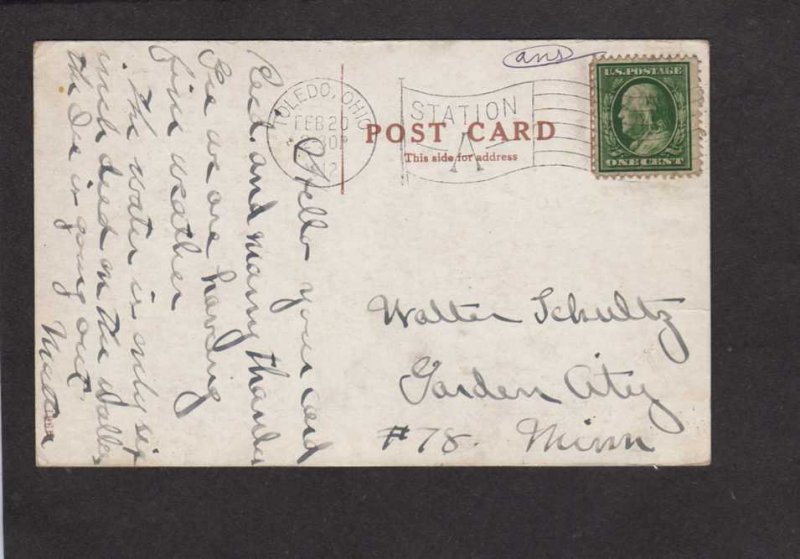 ans
TOLEDO, OHIO
FEB 20
12
STATION
A
U.S. POSTAGE
ONE CENT
POST CARD
This side for address
Hello your card
Recd. and many thanks
Gee we are having
fine weather
The water is only six
inch deed on the
the Ice is going out
Walter Schultz
Garden City
#78. Minn